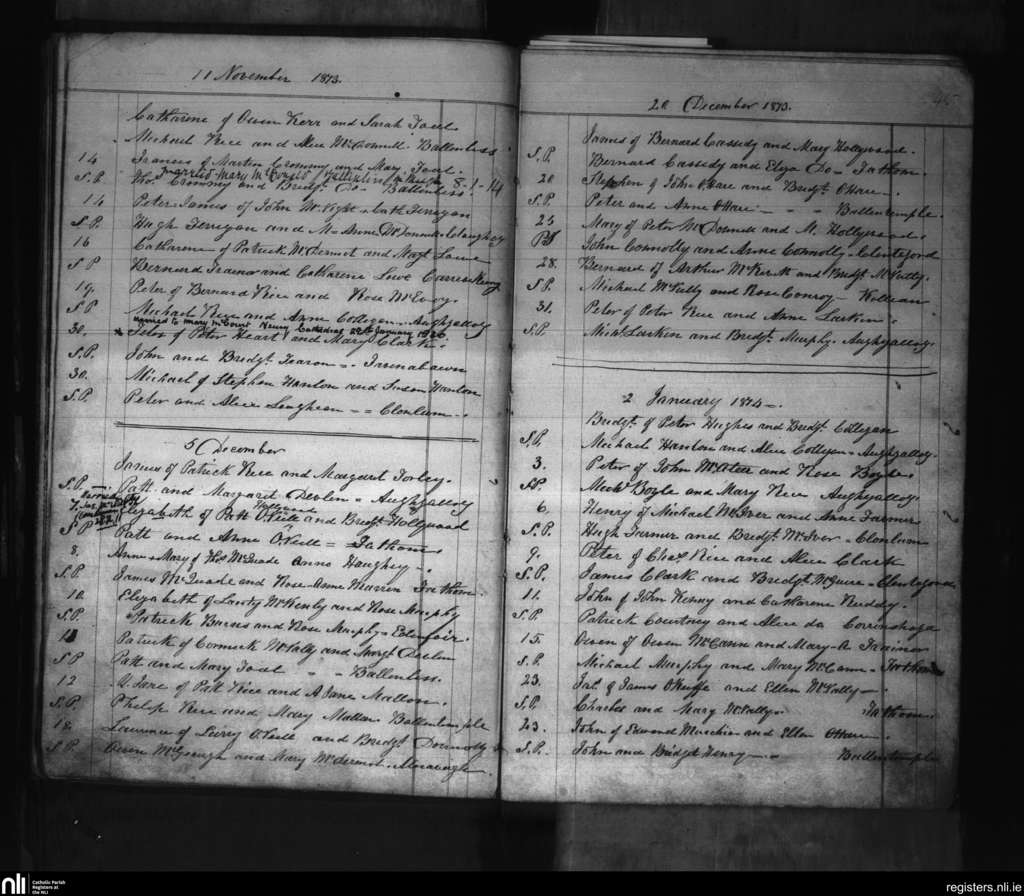 11 November 1873.
Catharine of Owen Kerr and Sarah Toal.
Michael Rice and Alice McConnell Ballenless
14 Francis of Martin Crommy and Mary Toal.
married Mary McCourt 8-1-14
S.P. Thos. Crommy and Bridgt. Do- Ballenless.
14 Peter James of John McVight & Cath Ferrigan
S.P. Hugh Ferrigan and M. Anne McDonnell
16 Catharine of Patrick McDermot and Margt Lowe
S P Bernard Trainor and Catharine Lowe Carrickeny
19. Peter of Bernard Rice and Rose McEvoy.
S P Michael Rice and Anne Collegan - Aughgalloy
married to Mary McCourt Newry Cathedral January
30. x Peter of Peter Heart, and Mary Clark.
S.P. John and Bridgt. Fearon -
30. Michael of Stephen Hanlon and Susan Hanlon
S.P. Peter and Alice = = Clonlum -.
5 December
James of Patrick Rice and Margaret Torley.
S.P. -. Patt. and Margaret Devlin = Aughgalloy
Married
Elizabeth of Patt O'Neile and Bridgt Hollywood
S P Patt and Anne O'Neile = Fathom
8. Anne-Mary of Thos. McQuade Anne Haughey -.
S.P. James McQuade and Rose-Anne Fathom
10. Elizabeth of McKenty and Rose Murphy
S.P. Patrick Barres and Rose Murphy = Edenfoir.
11 Patrick of Cormick McVally and Margt Devlin
S P Patt and Mary Toal " " Ballenless.
12 M. Jane of Patt Rice and A Jane Mallon.
S.P. Phelep Rice and Mary Mallon Ballentemple
18. Laurence of Larry O'Neile and Bridgt Donnolly
S.P. Owen McGeough and Mary McDermot.
20 December 1873.
45
James of Bernard Cassidy and Mary Hollywood.
S.P. Bernard Cassidy and Eliza Do - Fathom.
20 Stephen of John O'Hare and Bridgt. O'Hare -.
S.P. Peter and Anne O'Hare - - - Ballentemple.
25 Mary of Peter McDonnell and M. Hollywood.
John Connolly and Anne Connolly - Clontygond
28. Bernard of Arthur McKevitt and Bridgt. McVally.
S.P. Michael McVally and Rose Conroy - Killean
31. Peter of Peter Rice and Anne Larkin.
S.P. Michl. Larkin and Bridgt. Murphy. Aughgalloy.
2 January 1874 -.
Bridgt. of Peter Hughes and Bridgt. Collegan
S.P. Michael Hanlon and Alice Collegan - Aughgalloy.
3. Peter of John McAteer and Rose Boyle.
S.P. Michl. Boyle and Mary Rice Aughgalloy.
6. Henry of Michael McIver and Anne Farmer
S.P. Hugh Farmer and Bridgt. McIver - Clonlum
9. Peter of Chas. Rice and Alice Clark
S.P. James Clark and Bridgt McGuire - Clontygond
11. John of John Kenny and Catharine Ruddy.
S.P. Patrick Courtney and Alice do Corrinshiga
15. Owen of Owen McCann and Mary-A Trainor
S.P. Michael Murphy and Mary McCann - Fathom
23. Jas. of James O'Keeffe and Ellen McVally -.
S.P. Charles and Mary McVally. Fathom.
23. John of Edward and Ellen O'Hare -.
S.P. John and Bridget Henry - - Ballentemple
nli
Catholic Parish
Registers at
the NLI
registers.nli.ie